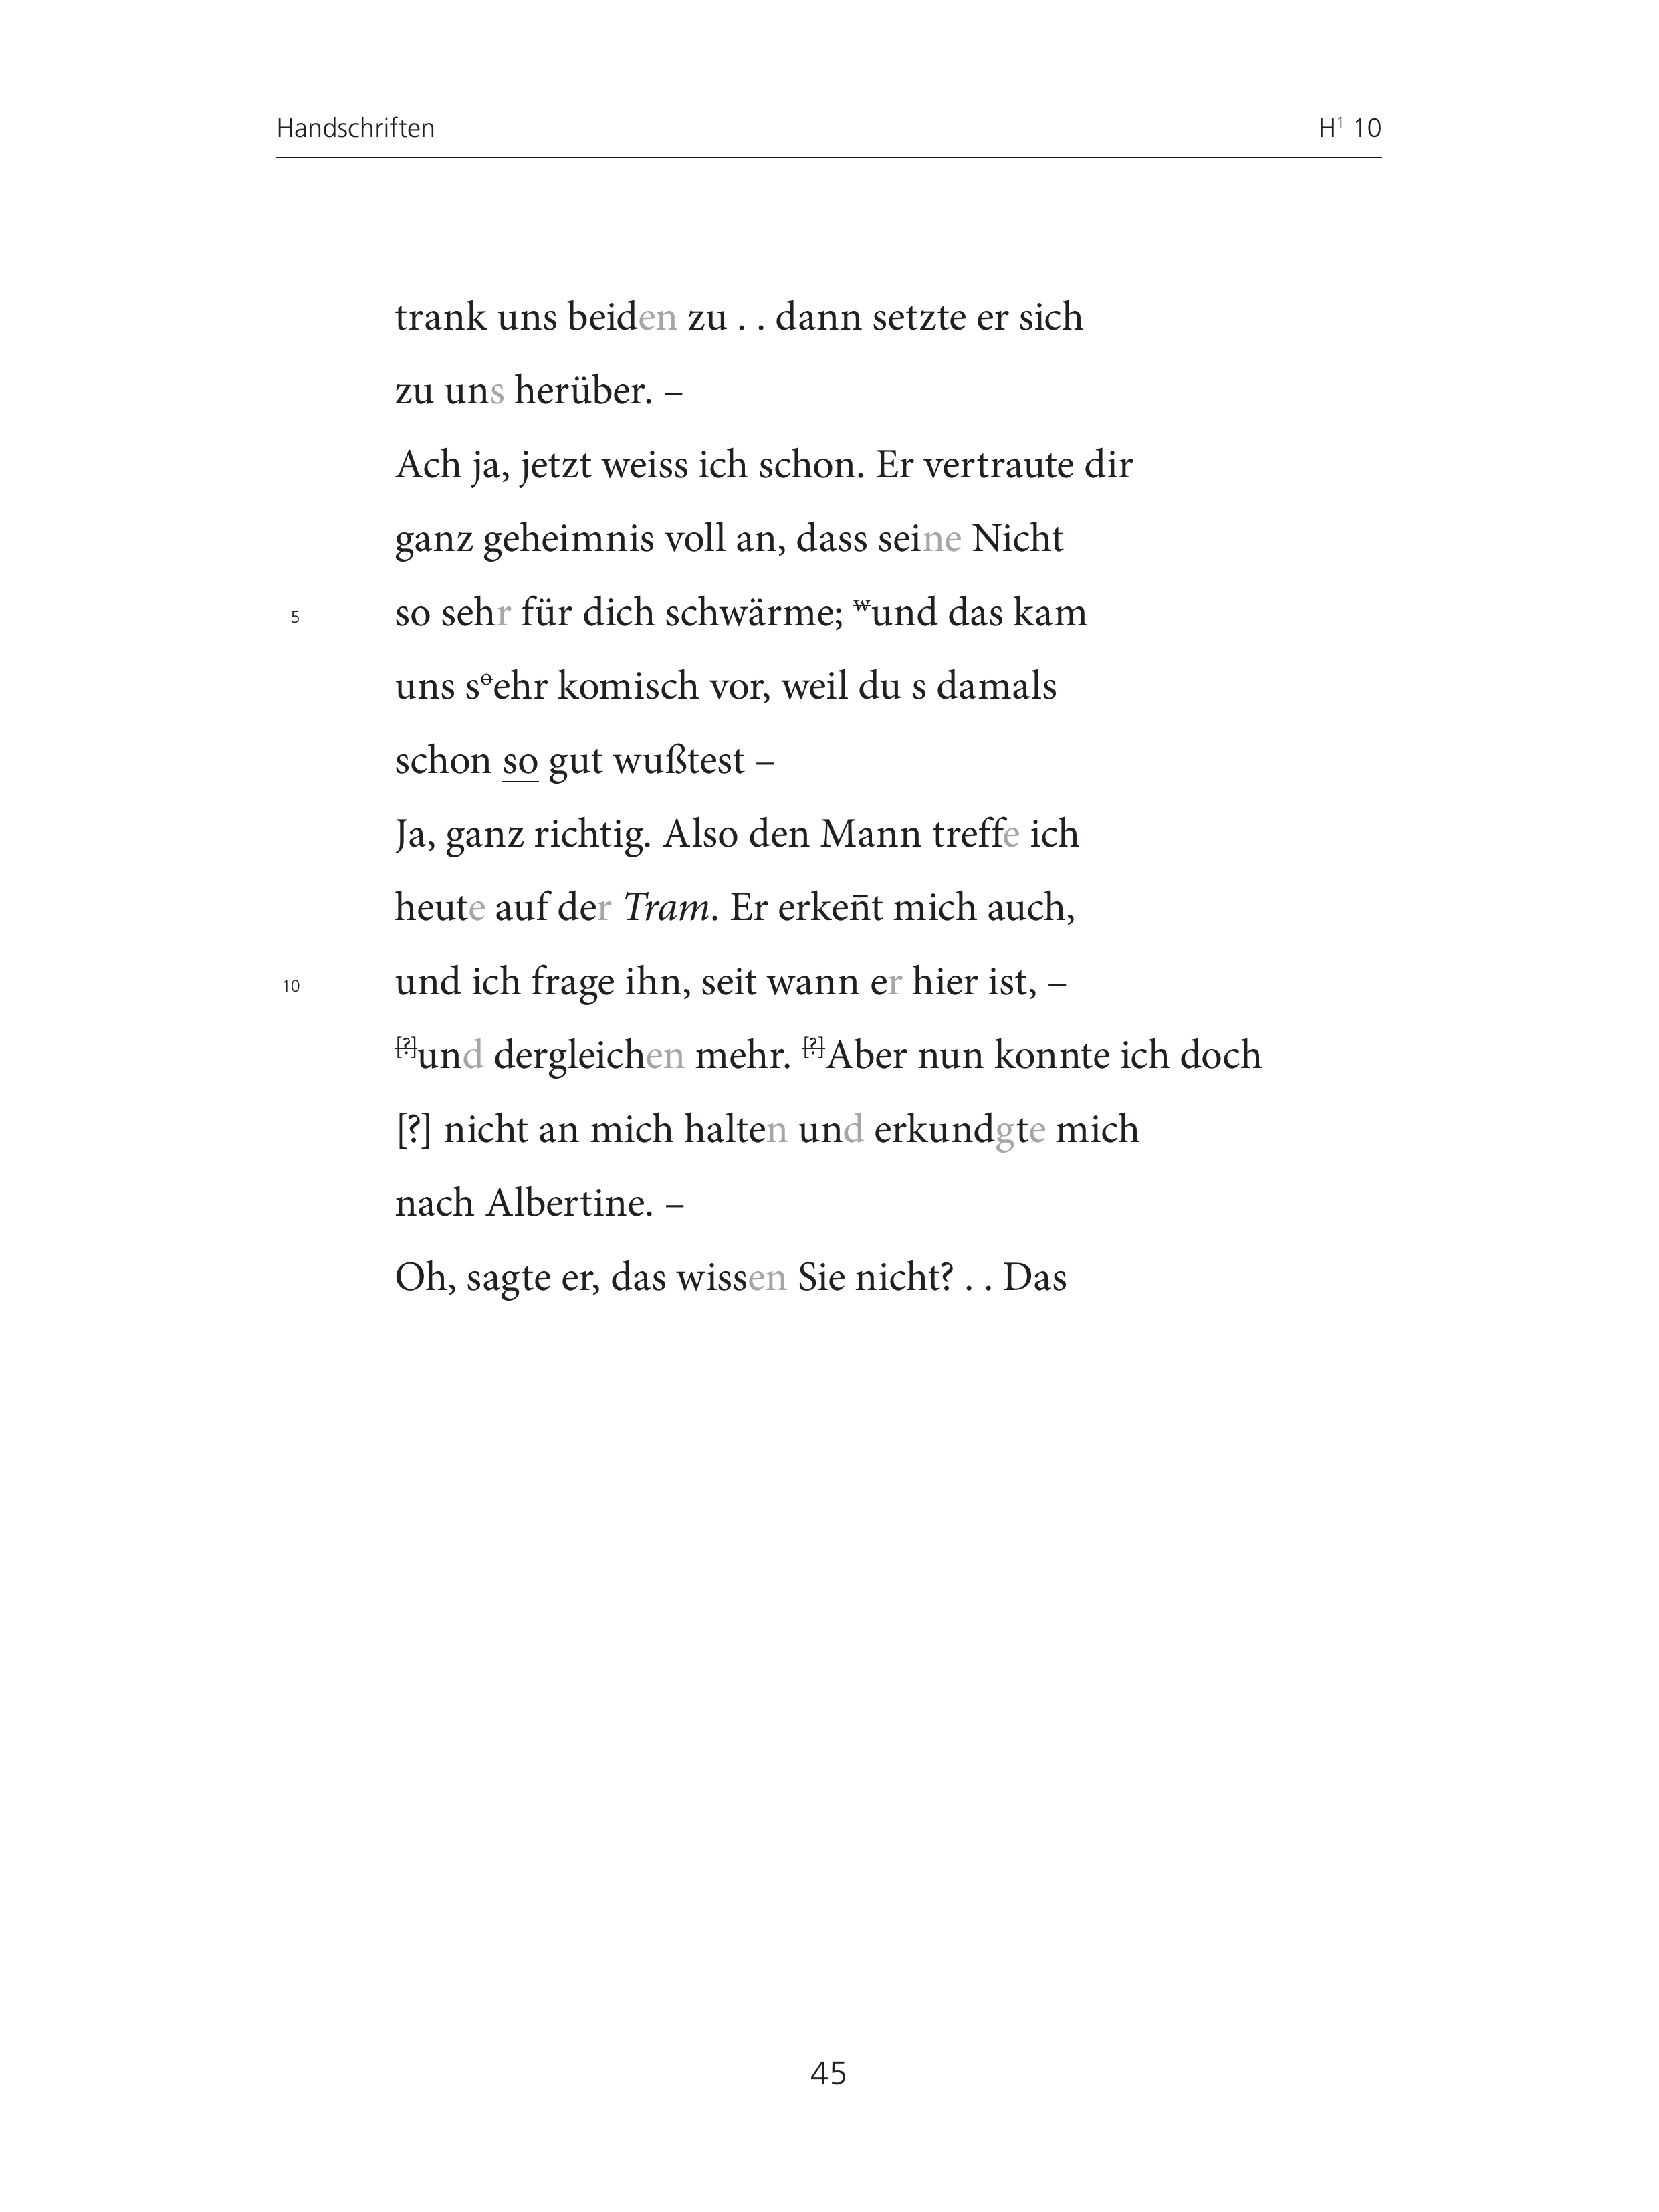 Handschriften H¹ 10
trank uns beiden zu . . dann setzte er sich
zu uns herüber. –
Ach ja, jetzt weiss ich schon. Er vertraute dir
ganz geheimnis voll an, dass seine Nicht
5 so sehr für dich schwärme; wund das kam
uns soehr komisch vor, weil du s damals
schon so gut wußtest –
Ja, ganz richtig. Also den Mann treffe ich
heute auf der Tram. Er erken̄t mich auch,
10 und ich frage ihn, seit wann er hier ist, –
[?]und dergleichen mehr. [?]Aber nun konnte ich doch
[?] nicht an mich halten und erkundgte mich
nach Albertine. –
Oh, sagte er, das wissen Sie nicht? . . Das
45